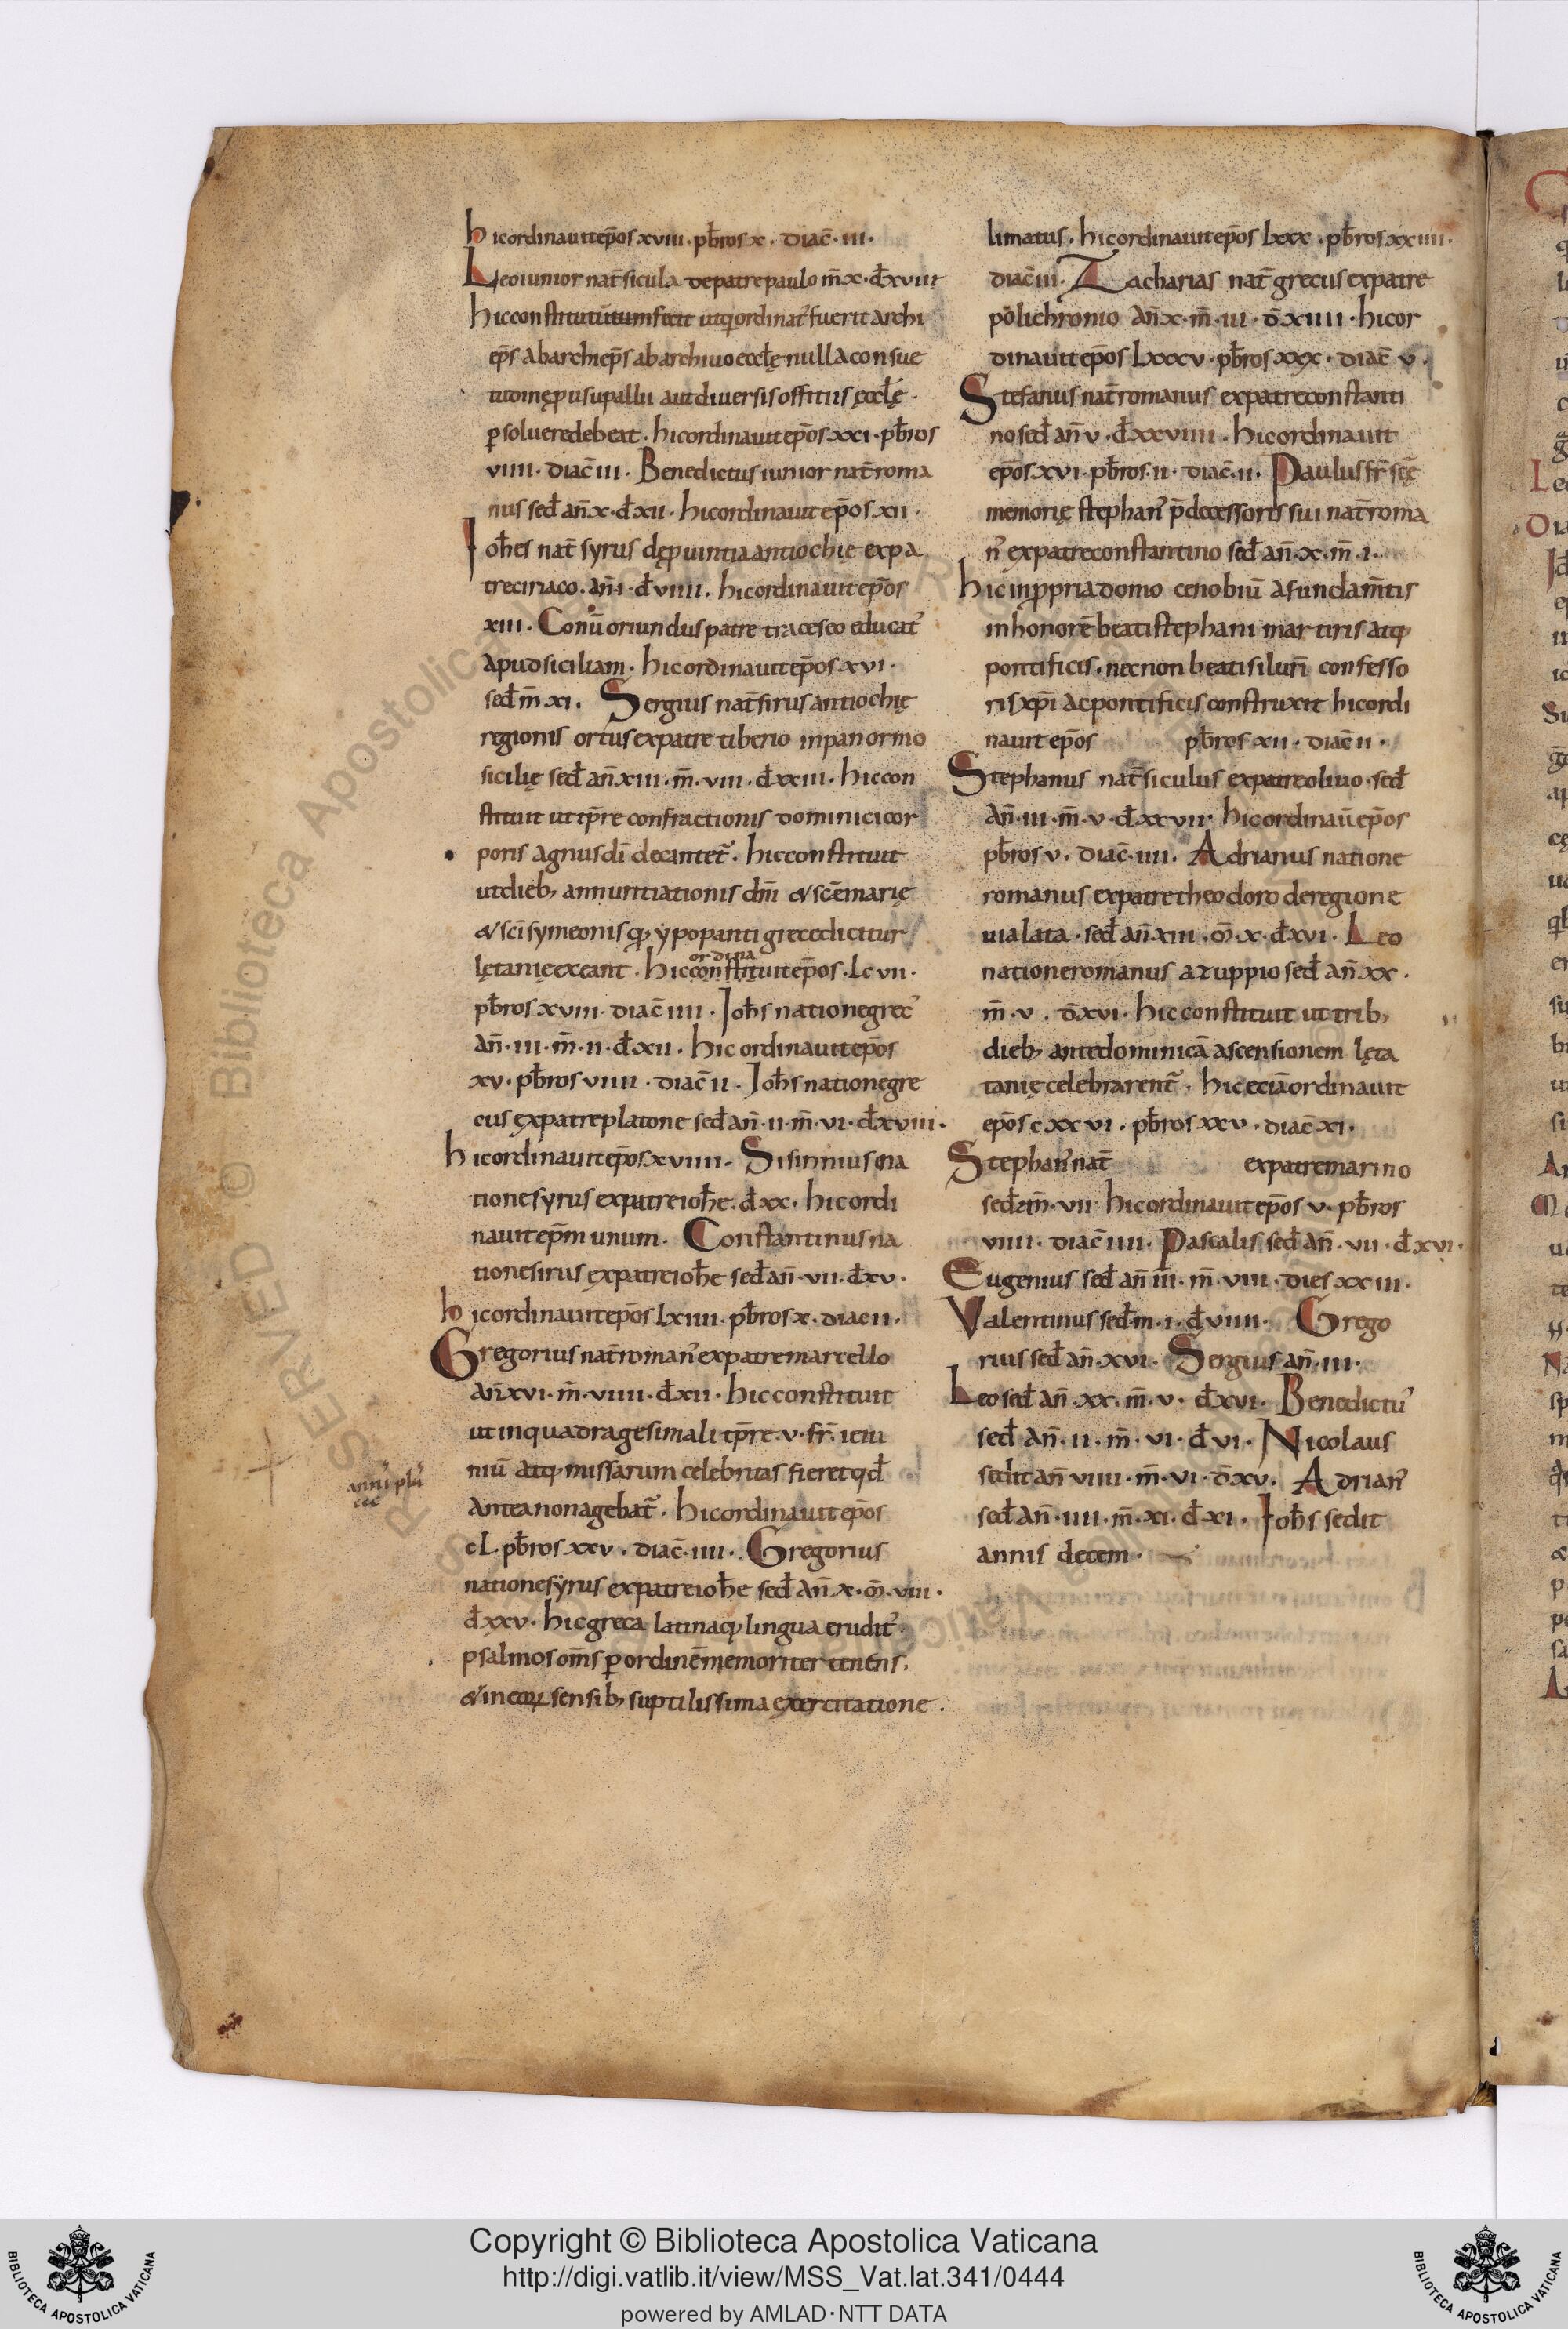 hicordinauitep̄os xviii · pb̄ros x · diac̄ · iii ·
Leoiunior nat̄ sicula depatrepaulo m̄ x · d̄ xviii
hicconstitutūtumfecit utq̨ordinat᾽ fuerit archi
ep̄s abarchiep̄s abarchiuo eccłę nullaconsue
tudinęp usupallii autdiuersisoffitiis ęccłę ·
ꝑsolueredebeat · hicordinauitep̄os xxi · pb̄ros
viiii · diac̄ iii · Benedictus iunior nat̄ roma
nus sed̄ an̄ x · d̄ xii · hicordinauit ep̄os xii ·
Ioh̄es nat̄ syrus dęꝓuintiaantiochię expa
treciriaco · an̄ · i · d̄ viiii · hicordinauitep̄os
xiii · Conū oriundus patre traceseo educat᾽
apudsiciliam · hicordinauitep̄os xvi ·
sed̄ m̄ xi · Sergius nat̄ sirus antiochię
regionis ortus expatre tiberio inpanormo
sicilię sed̄ an̄ xiii · m̄ · viii · d̄ xxiii · hiccon
stituit uttp̄re confractionis dominicicor
poris agnusdī decantet᷑ · hicconstituit
utdieb; annuntiationis dn̄i & scēmarię
& scīsymeonis q̨ ypopanti grecedicitur
lętanięexeant · hicconstituitep̄os · lc vii ·
ordina
pb̄ros xviii · diac̄ iiii · Ioh̄s nationegrec᾽
an̄ · iii · m̄ · ii · d̄ xii · hic ordinauitep̄os
xv · pb̄ros viiii · diac̄ ii · Ioh̄s nationegre
cus expatreplatone sed̄ an̄ · ii · m̄ · vi · d̄ xviii ·
hicordinauitep̄os xviiii · Sisinnius na
tionesyrus expatreioh̄e · d̄ xx · hicordi
nauitep̄m unum · Constantinus na
tionesirus expatreioh̄e sed̄ an̄ · vii · d̄ xv ·
hicordinauitep̄os lxiiii · pb̄ros x · diac ii ·
Gregorius nat̄ roman᾽ expatremarcello
an̄ xvi · m̄ · viiii · d̄ xii · hicconstituit
utinquadragesimali tp̄re · v · fr̄ · ieiu
niū atq̨ missarum celebritas fieret qd̄
anteanonagebat᷑ · hicordinauit ep̄os
cl · pb̄ros xxv · diac̄ · iiii · Gregorius
nationesyrus expatreioh̄e sed̄ an̄ x · m̄ · viii ·
d̄ xxv · hicgreca latinaq̨ lingua erudit᾽
psalmosom̄s ꝑordinē memoriter tenens ·
& ineoꝝ sensib; suptilissima exercitatione ·
ann᾽ plū
ccc
limatus · hicordinauitep̄os lxxx · pb̄ros xxiiii ·
diac̄ iii · Zacharias nat̄ grecus expatre
polichronio an̄ x · m̄ · iii · d̄ xiiii · hicor
dinauitep̄os lxxxv · pb̄ros xxx · diac̄ v ·
Stefanus nat̄ romanus expatreconstanti
no sed̄ an̄ v · d̄ xxviiii · hicordinauit
ep̄os xvi · pb̄ros · ii · diac̄ · ii · Paulus fr̄ scę̄
memorię stephan᾽ p̄decessoris sui nat̄ roma
n᾽ expatreconstantino sed̄ an̄ · x · m̄ · i ·
hicinꝓpriadomo cenobiū afundam̄tis
inhonorē beatistephani martiris atq̨
pontificis · necnon beatisilur̄i confesso
risxp̄i acpontificis construxit hicordi
nauit ep̄os pb̄ros xii · diac̄ ii ·
Stephanus nat̄ siculus expatreoliuo · sed̄
an̄ · iii · m̄ · v · d̄ xxvii · hicordinaū ep̄os
pb̄ros v · diac̄ · iiii · Adrianus natione
romanus expatretheodoro deregione
uialata · sed̄ an̄ xiii · m̄ · x · d̄ xvi · Leo
nationeromanus atuppio sed̄ an̄ xx ·
m̄ · v · d̄ xvi · hicconstituit uttrib;
dieb; antedominicā ascensionem lęta
tanię celebrarent᷑ · hiceciāordinauit
ep̄os cxxvi · pb̄ros xxv · diac̄ xi ·
Stephan᾽ nat̄ expatremarino
sed̄ m̄ · vii · hicordinauitep̄os v · pb̄ros
viiii · diac̄ iiii · Pascalis sed̄ an̄ · vii · d̄ xvi ·
Eugenius sed̄ an̄ iii · m̄ · viii · dies xxiii ·
Valentinus sed̄ · m · i · d̄ viiii · Grego
rius sed̄ an̄ · xvi · Sergius an̄ · iii ·
Leo sed̄ an̄ · xx · m̄ · v · d̄ xvi · Benedictu᾽
sed̄ an̄ · ii · m̄ · vi · d̄ vi · Nicolaus
sedit an̄ viiii · m̄ · vi · d̄ xv · Adrian᾽
sed̄ an̄ · iiii · m̄ · xi · d̄ xi · Ioh̄s sedit
annis decem ·
Copyright © Biblioteca Apostolica Vaticana
http://digi.vatlib.it/view/MSS_Vat.lat.341/0444
powered by AMLAD·NTT DATA